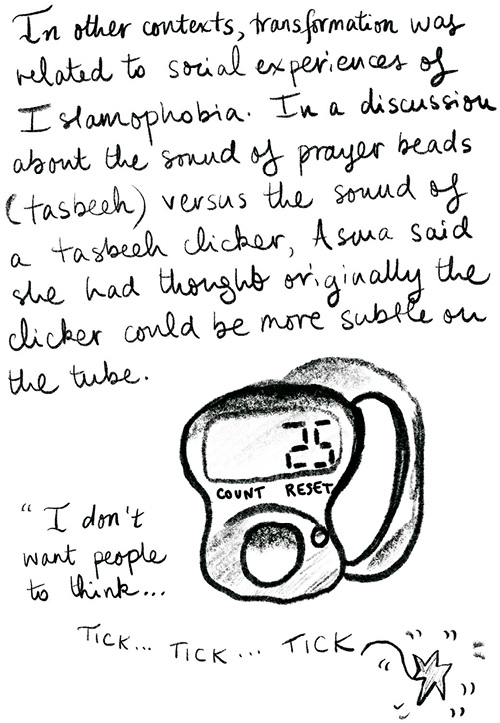 In other contexts, transformation was
related to social experiences of
Islamophobia. In a discussion
about the sound of prayer beads
(tasbeeh) versus the sound of
a tasbeeh clicker, Asma said
she had thought originally the
clicker could be more subtle on
the tube.
25
COUNT RESET
"I don't
want people
to think...
TICK... TICK... TICK